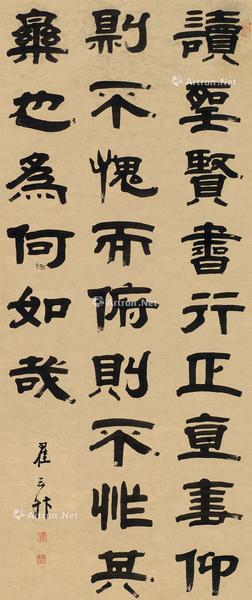 讀聖賢書行正直事仰
則不愧而俯則不怍其
樂也為何如哉
翟云升
Artron.Net
Artron.Net
Artron.Net
Artron.Net
Artron.Net